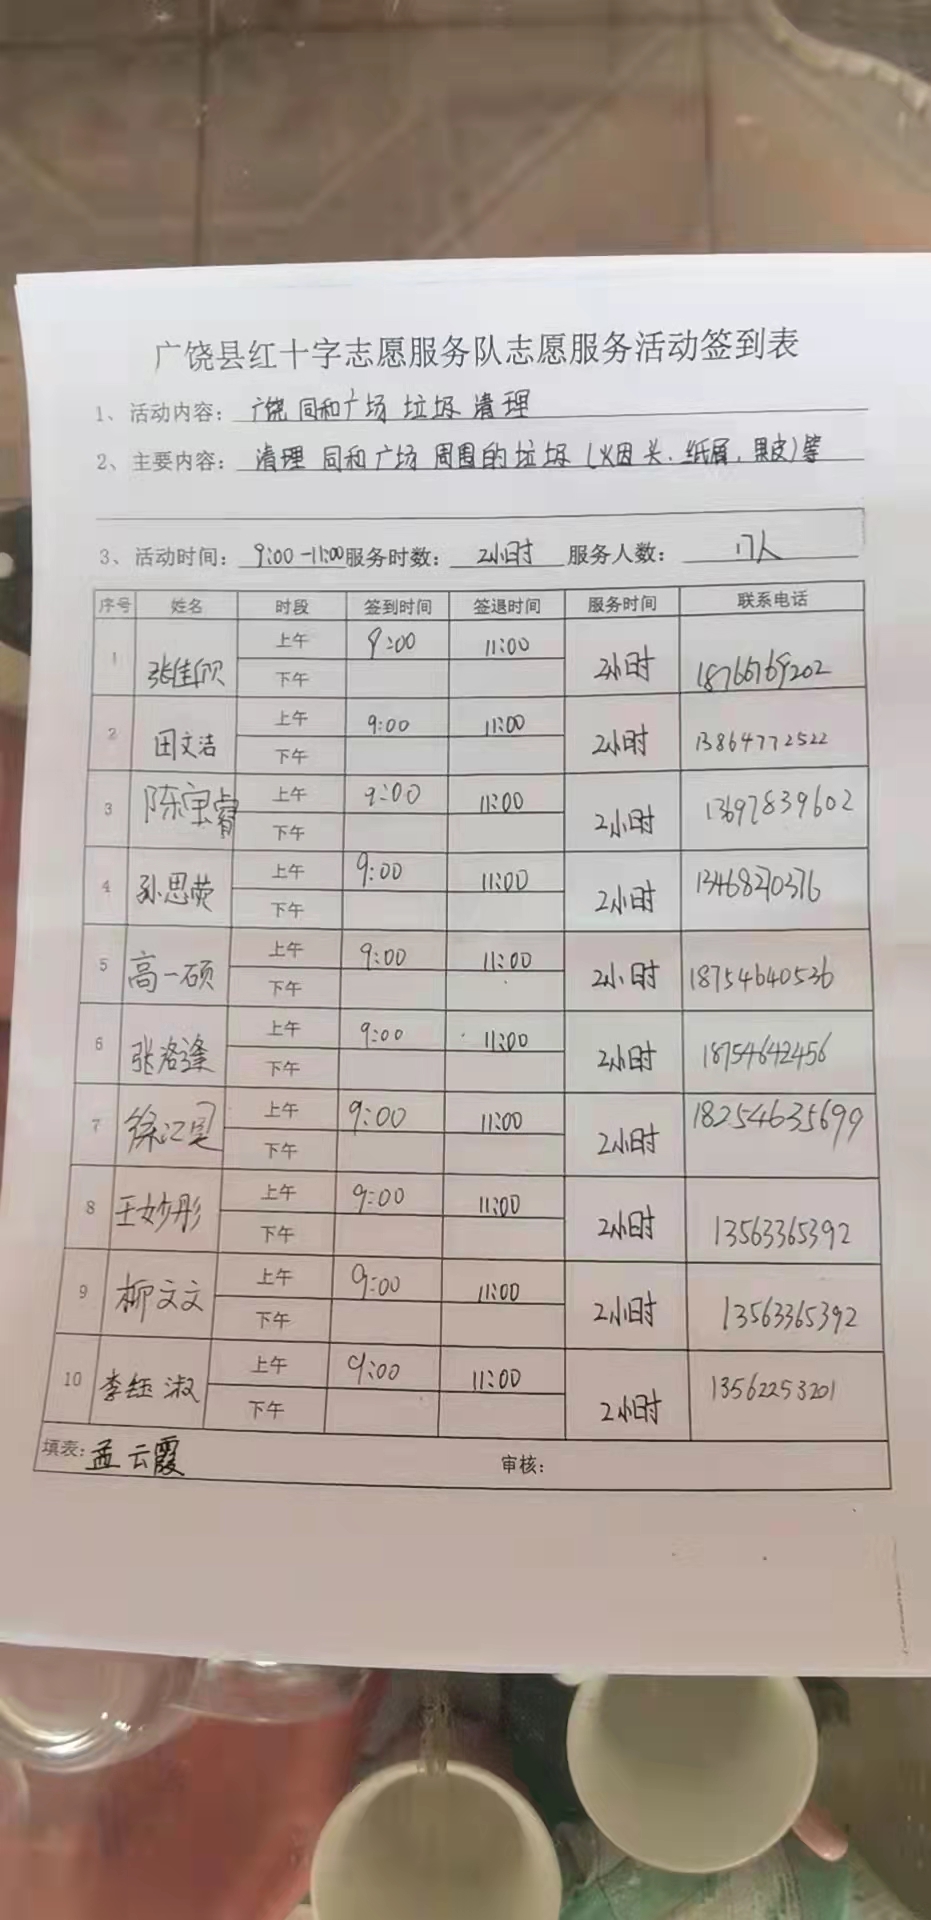 广饶县红十字志愿服务队志愿服务活动签到表
1、活动内容：广饶 同和广场 垃圾 清理
2、主要内容：清理 同和广场 周围的垃圾（烟头、纸屑、果皮）等
3、活动时间：9:00-11:00 服务时数：2小时 服务人数：17人
序号 姓名 时段 签到时间 签退时间 服务时间 联系电话
1 张佳欣 上午 9:00 11:00 2小时 18766769202
下午
2 田文洁 上午 9:00 11:00 2小时 13864772522
下午
3 陈宝睿 上午 9:00 11:00 2小时 13697839602
下午
4 孙思荧 上午 9:00 11:00 2小时
下午
5 高一硕 上午 9:00 11:00 2小时 18754640536
下午
6 张洛逢 上午 9:00 11:00 2小时 18754642456
下午
7 上午 9:00 11:00 2小时 18254635699
下午
8 王妙彤 上午 9:00 11:00 2小时 13563365392
下午
9 柳文文 上午 9:00 11:00 2小时 13563365392
下午
10 李钰淑 上午 9:00 11:00 2小时 13562253201
下午
填表：孟云霞 审核：